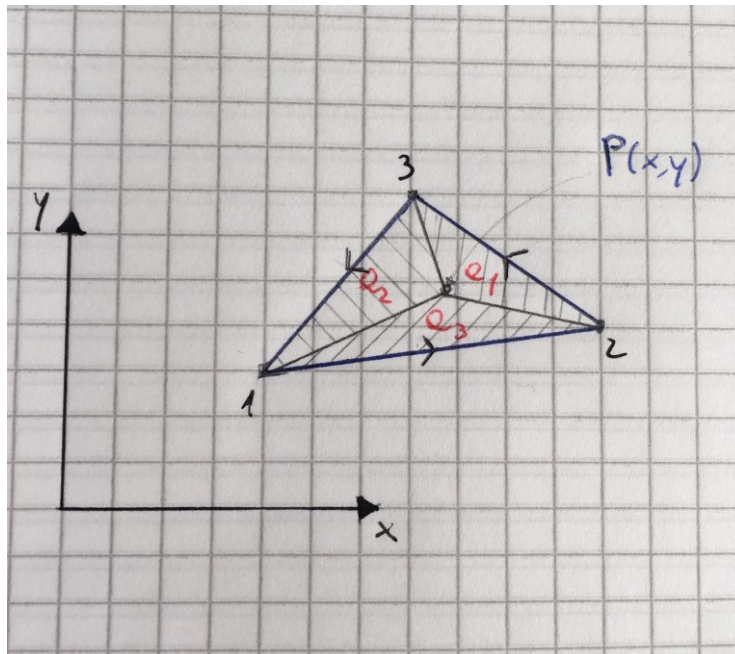 3
P(x,y)
y
e2
e1
e3
2
1
x